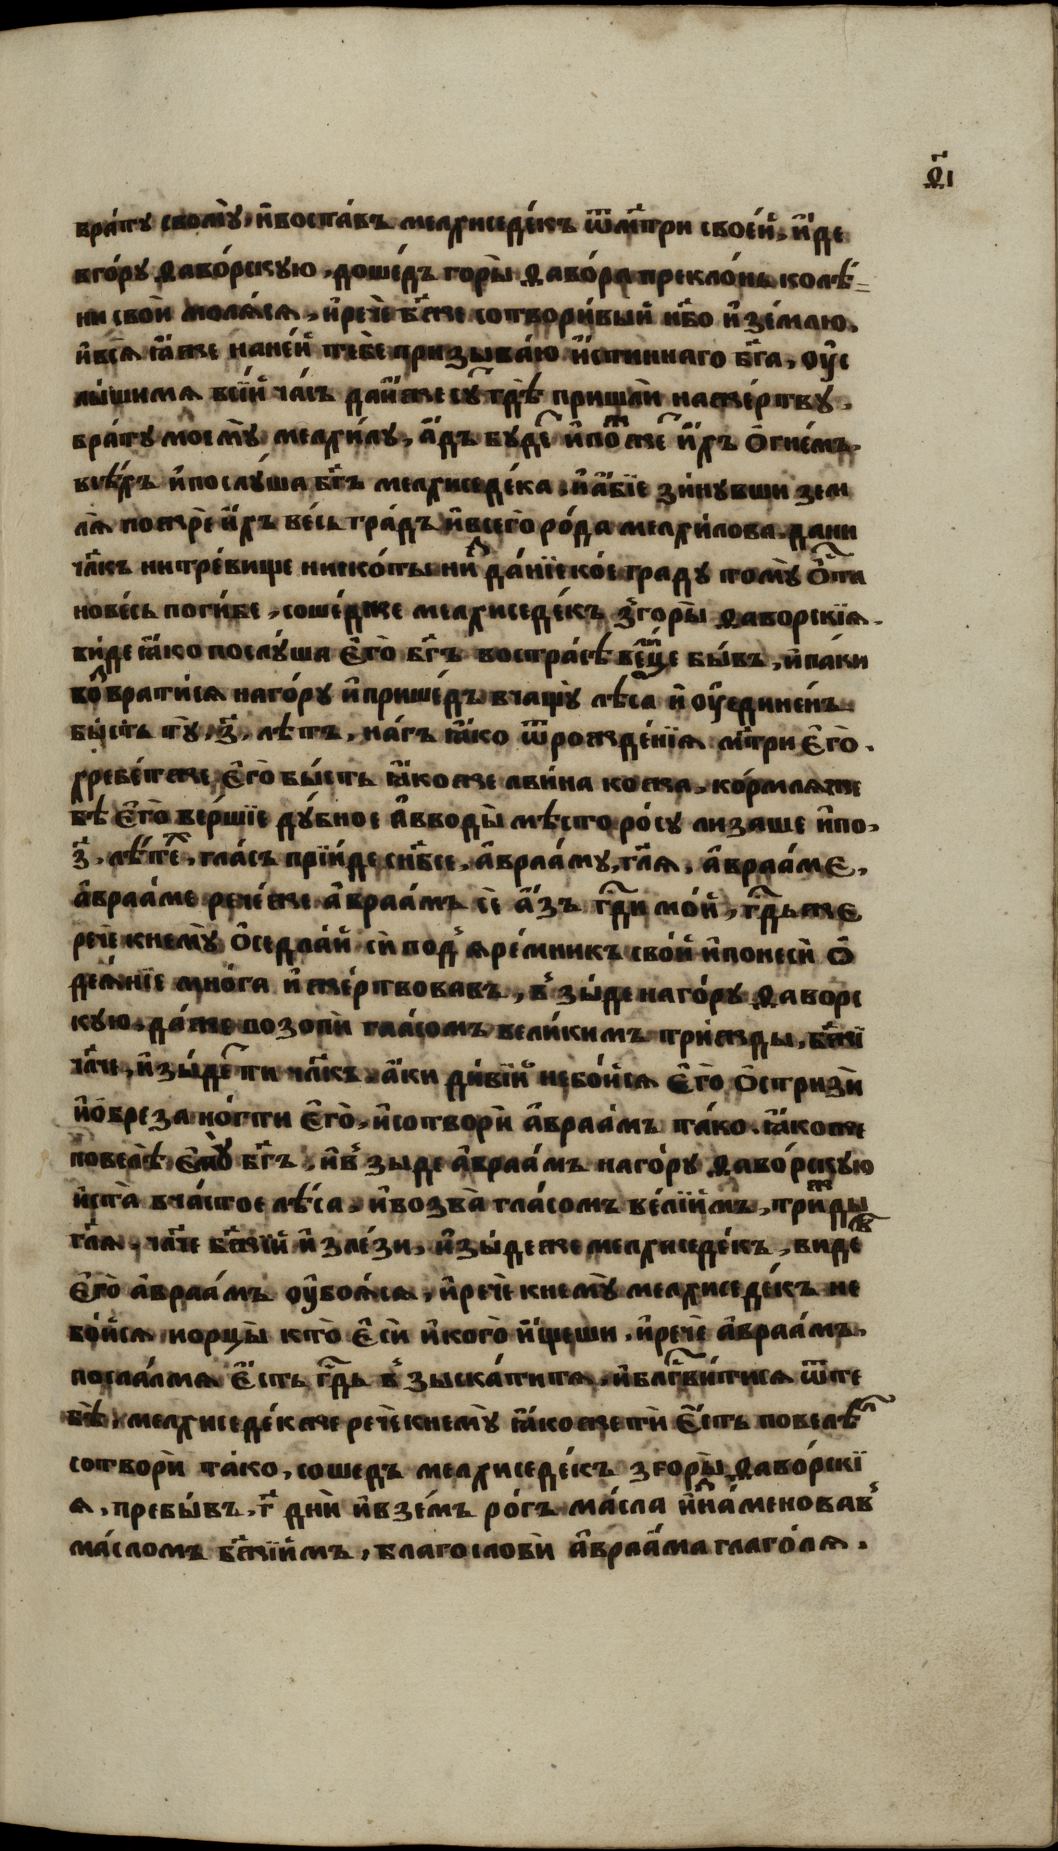 ѳ҃і
бра́ту своему̀, и҆воста́въ мелхиседе́къ ѿмт҃ри свое́й, и҆́де
вго́ру ѳаво́рскую, доше́дъ горы̀ ѳаво́ра преклонь колѣ́=
ни своѝ моля́ся, и҆речѐ бж҃е сотвори́вый нб҃о и҆зе́млю,
и҆вся̀ ꙗ҆́же на не́й тебе призыва́ю и҆́стиннаго бг҃а, оу҆с
лы́шимя всі́й ча́съ да и҆́же су́ гдѣ̀ пришлѝ наже́ртву,
бра́ту моему̀ мелхи́лу, а҆́дъ буде и҆пожже и҆́хъ ѻ҆гне́мъ.
всѣ́хъ и҆послу́ша бг҃ъ мелхиседе́ка, и҆а҆́бїе зи́нувши зем
ля̀ пожрѐ и҆́хъ ве́сь гра́дъ и҆всего̀ ро́да мелхи́лова. да ни
чл҃къ нитре́бище нискоты ни зда́нїе кое граду тому̀ ѻ҆ста
но ве́сь поги́бе, соше́дже мелхиседе́къ з̾горы̀ ѳаворскїя.
ви́де ꙗ҆́ко послу́ша є҆го̀ бг҃ъ востра́сѣ ве́лице бы́въ, и҆паки
возврати́ся наго́ру и҆прише́дъ вчащу̀ лѣ́са и҆ оу҆едине́нъ
бы́сть ту̀, з҃, лѣ́тъ, на́гъ ꙗ҆́ко ѿрожде́нїя мт҃ри є҆го̀.
хребе́тже є҆го̀ бы́сть ꙗ҆́коже лви́на кожа, ко́рмляже
бѣ̀ є҆го̀ ве́ршїе ду́бное а҆вводы̀ мѣ́сто ро́су лизаше и҆по,
з҃, лѣ́техъ, гла́съ прїи́де снб҃се, а҆враа́му, гл҃я, а҆враа́ме,
а҆враа́ме рече́же а҆враа́мъ сѐ а҆́зъ гд҃и мо́й, гд҃ьже
речѐ кнему̀ ѻ҆седла́й сѝ под̾яре́мникъ сво́й и҆понесѝ ѻ҆
дея́нїе мно́га и҆же́ртвовавъ, в̾зы́де наго́ру ѳаворс
кую, да́же возопѝ гла́сомъ вели́кимъ три́жды, бж҃ї
чл҃че, и҆зы́детти чл҃къ а҆́ки ди́вїй небо́йся є҆го̀ ѻ҆стризѝ
и҆ѻбреза но́гти є҆го̀, и҆сотворѝ а҆враа́мъ та́ко. ꙗ҆́коже
повелѣ̀ є҆му̀ бг҃ъ, и҆в̾зыде а҆враа́мъ наго́ру ѳаво́рскую
и҆ста̀ вча́стое лѣ́са, и҆возва̀ гла́сомъ ве́лїимъ, трижды
гл҃я, чл҃че бж҃їй и҆злѣ́зи, и҆зы́деже мелхиседе́къ, видев
є҆го̀ а҆враа́мъ оу҆боя́ся, и҆речѐ кнему̀ мелхиседе́къ не
бо́йся норцы̀ кто̀ є҆сѝ и҆кого̀ и҆́щеши, и҆речѐ а҆враа́мъ,
посла́лмя є҆́сть гд҃ь в̾зыска́титя, и҆блгⷭ҇ви́тися ѿте
бѣ̀, мелхиседе́кже речѐ кнему̀ ꙗ҆́кожетѝ є҆́сть повелѣ́л
сотворѝ та́ко, соше́дъ мелхиседе́къ згоры̀ ѳаво́рскї
я, пребы́въ, г҃ днѝ и҆взе́мъ ро́гъ ма́сла и҆зна́меновав̾
ма́сломъ бж҃їимъ, благословѝ а҆враа́ма глаго́ля.